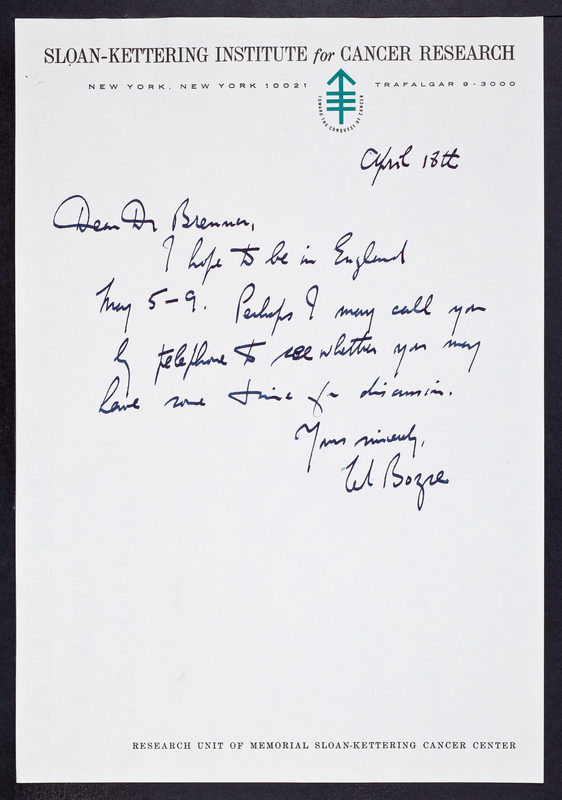 SLOAN-KETTERING INSTITUTE for CANCER RESEARCH
NEW YORK, NEW YORK 10021
TRAFALGAR 9-3000
TOWARD THE CONQUEST OF CANCER
April 18th
Dear Dr Brenner,
I hope to be in England
May 5-9. Perhaps I may call you
by telephone to see whether you may
have some time for discussion.
Yours sincerely,
RESEARCH UNIT OF MEMORIAL SLOAN-KETTERING CANCER CENTER